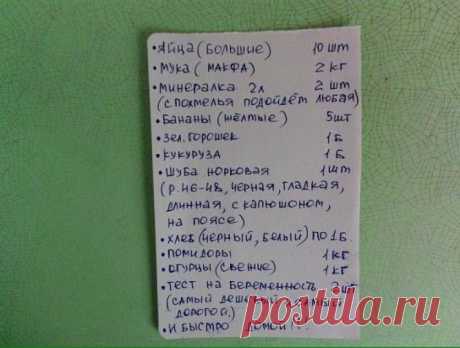 • Яйца (большие) 10 шт
• Мука (Макфа) 2 кг
• Минералка 2л 2 шт
(с похмелья подойдёт любая)
• Бананы (жёлтые) 5шт
• Зел. горошек 1 Б.
• Кукуруза 1 Б.
• Шуба норковая 1 шт
(р. 46-48, чёрная, гладкая,
длинная, с капюшоном,
на поясе)
• Хлеб (чёрный, белый) по 1 Б.
• Помидоры 1 кг
• Огурцы (свежие) 1 кг
• Тест на беременность 2 шт
(самый дешёвый, самый
дорогой)
• И быстро домой!!!
postila.ru